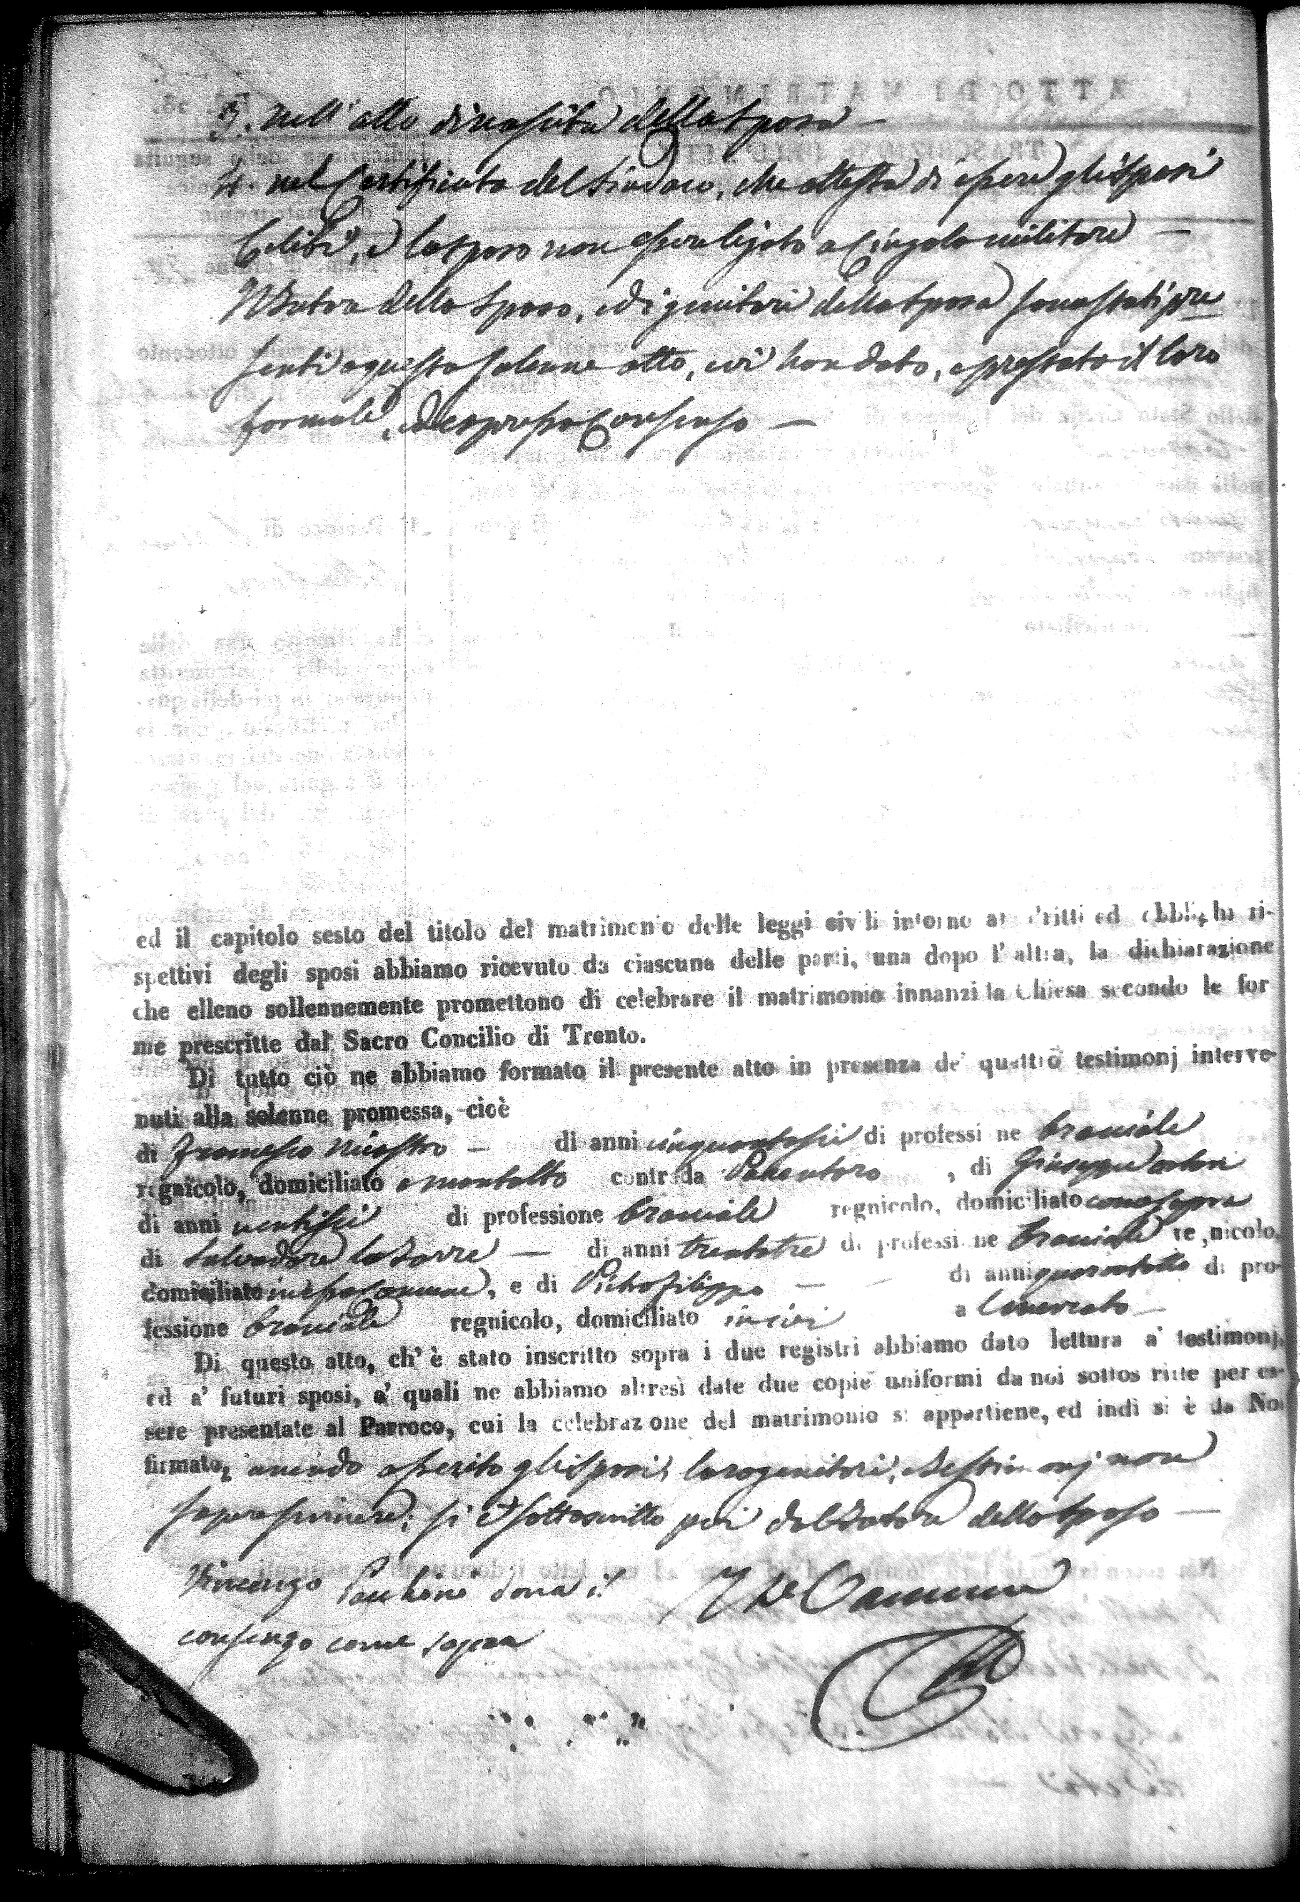 3. nell'atto di nascita della sposa —
4. nel Certificato del Sindaco, che attesta di essere gli sposi
Celibi, e lo sposo non essere ligato a Cingolo militare —
Il Tutore dello sposo, ed i genitori della sposa sono stati pre
senti a questo solenne atto, ed han dato, e prestato il loro
formale, ed espresso Consenso —
ed il capitolo sesto del titolo del matrimonio delle leggi civili intorno ai dritti ed obblighi ri-
spettivi degli sposi abbiamo ricevuto da ciascuna delle parti, una dopo l'altra, la dichiarazione
che elleno sollennemente promettono di celebrare il matrimonio innanzi la Chiesa secondo le for
me prescritte dal Sacro Concilio di Trento.
Di tutto ciò ne abbiamo formato il presente atto in presenza de' quattro testimonj interve-
nuti alla solenne promessa, cioè
di Francesco — di anni cinquantasei di professione bracciale
regnicolo, domiciliato a montalto contrada , di Giuseppe
di anni ventisei di professione bracciale regnicolo, domiciliato come sopra
di Salvadore la Torre — di anni trentatre di professione bracciale regnicolo,
domiciliato in esso comune, e di Pietro Filippo — di anni quarantotto di pro-
fessione bracciale regnicolo, domiciliato in ivi a
Di questo atto, ch' è stato inscritto sopra i due registri abbiamo dato lettura a' testimonj,
ed a' futuri sposi, a' quali ne abbiamo altresì date due copie uniformi da noi sottoscritte per es-
sere presentate al Parroco, cui la celebrazione del matrimonio si appartiene, ed indi si è da Noi
firmato, avendo asserito gli sposi, loro genitori, e testimonj non
sapere scrivere; si è sottoscritto poi dal Tutore dello sposo —
Vincenzo dona il
consenzo come sopra